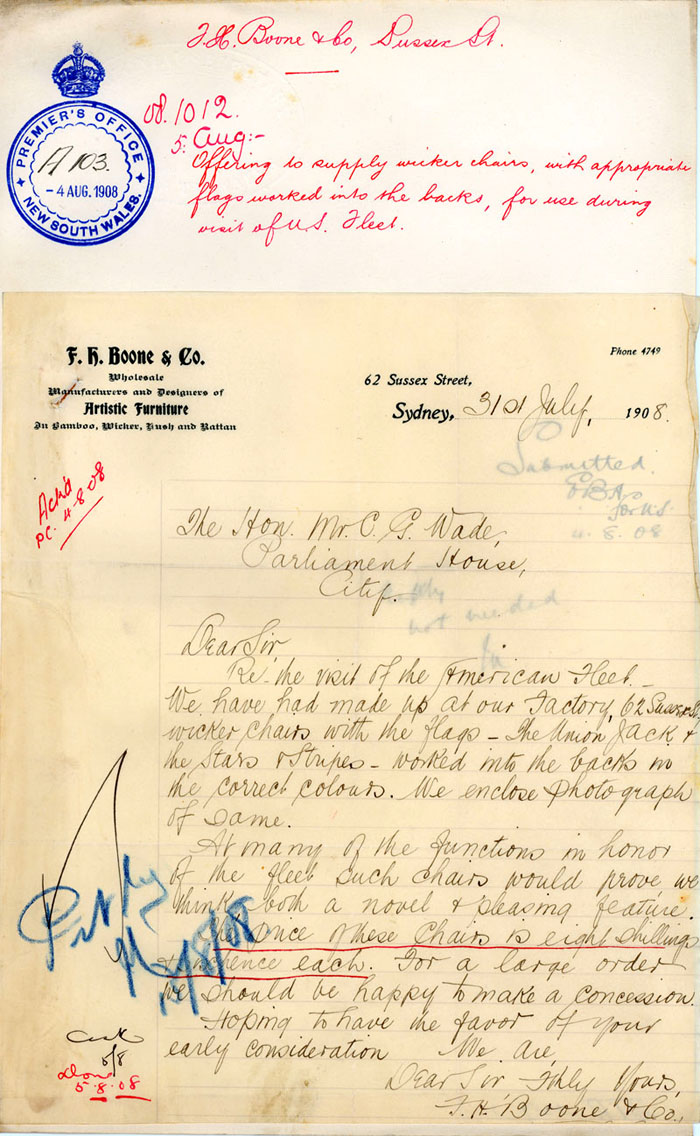 F.H. Boone & Co, Sussex St.
PREMIER'S OFFICE
A 103.
- 4 AUG. 1908
NEW SOUTH WALES.
08.1012.
5. Aug:-
Offering to supply wicker chairs, with appropriate
flags worked into the backs, for use during
visit of U.S. Fleet.
F. H. Boone & Co.
Wholesale
Manufacturers and Designers of
Artistic Furniture
In Bamboo, Wicker, Rush and Rattan
Phone 4749
62 Sussex Street,
Sydney, 31st July, 1908.
Submitted.
4.8.08
Ackd
PC. 4-8-08
The Hon. Mr. C. G. Wade,
Parliament House,
City.
not needed
Dear Sir
Re. the visit of the American Fleet -
We have had made up at our Factory, 62 Sussex St,
wicker chairs with the flags - The Union Jack &
the Stars & Stripes - worked into the backs in
the correct colours. We enclose photograph
of same.
At many of the functions in honor
of the fleet such chairs would prove we
think both a novel & pleasing feature.
The price of these chairs is eight shillings
& sixpence each. For a large order
we should be happy to make a concession.
Hoping to have the favor of your
early consideration We are,
Dear Sir Fthly Yours,
F. H. Boone & Co.,
Put by
5/8/08
5/8
5.8.08